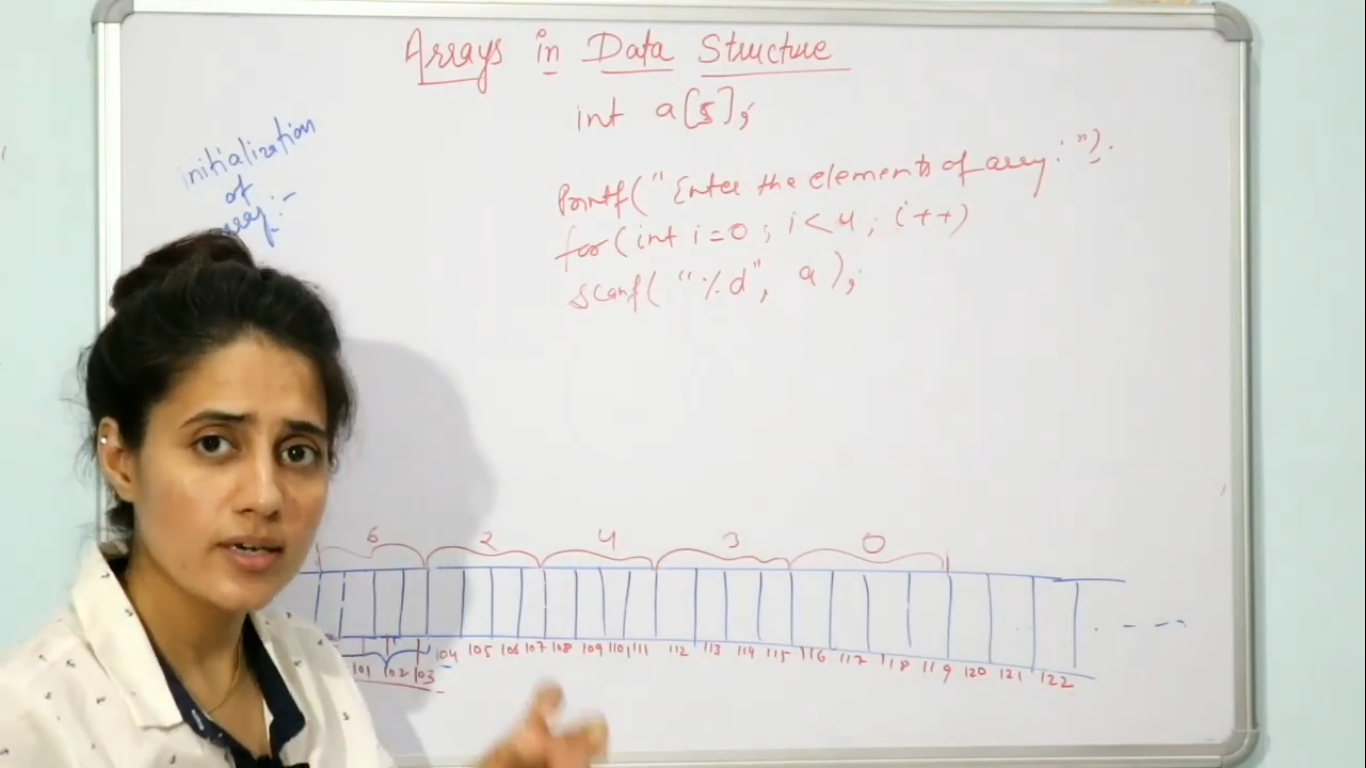 Arrays in Data Structure
int a[5];
initialization
of
array:-
Printf("Enter the elements of array:");
for(int i=0; i<4; i++)
scanf("%d", a);
6 2 4 3 0
101 102 103 104 105 106 107 108 109 110 111 112 113 114 115 116 117 118 119 120 121 122